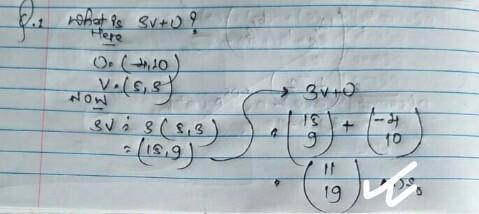 Q.1 What is 3v+U?
Here
U=(-4,10)
V=(5,3)
NOW
3V = 3(5,3)
=(15,9)
→ 3V+U
= (15 9) + (-4 10)
= (11 19) Ans